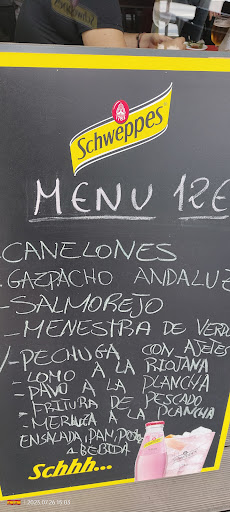 Schweppes
MENU 12E
-CANELONES
-GAZPACHO ANDALUZ
-SALMOREJO
-MENESTRA DE VERDU
-PECHUGA CON AJETES
-LOMO A LA RIOJANA
-PAVO A LA PLANCHA
-FRITURA DE PESCADO
-MERLUZA A LA PLANCHA
ENSALADA, PAN, POSTRE
BEBIDA
Schhh...
2025.07.26 15:03